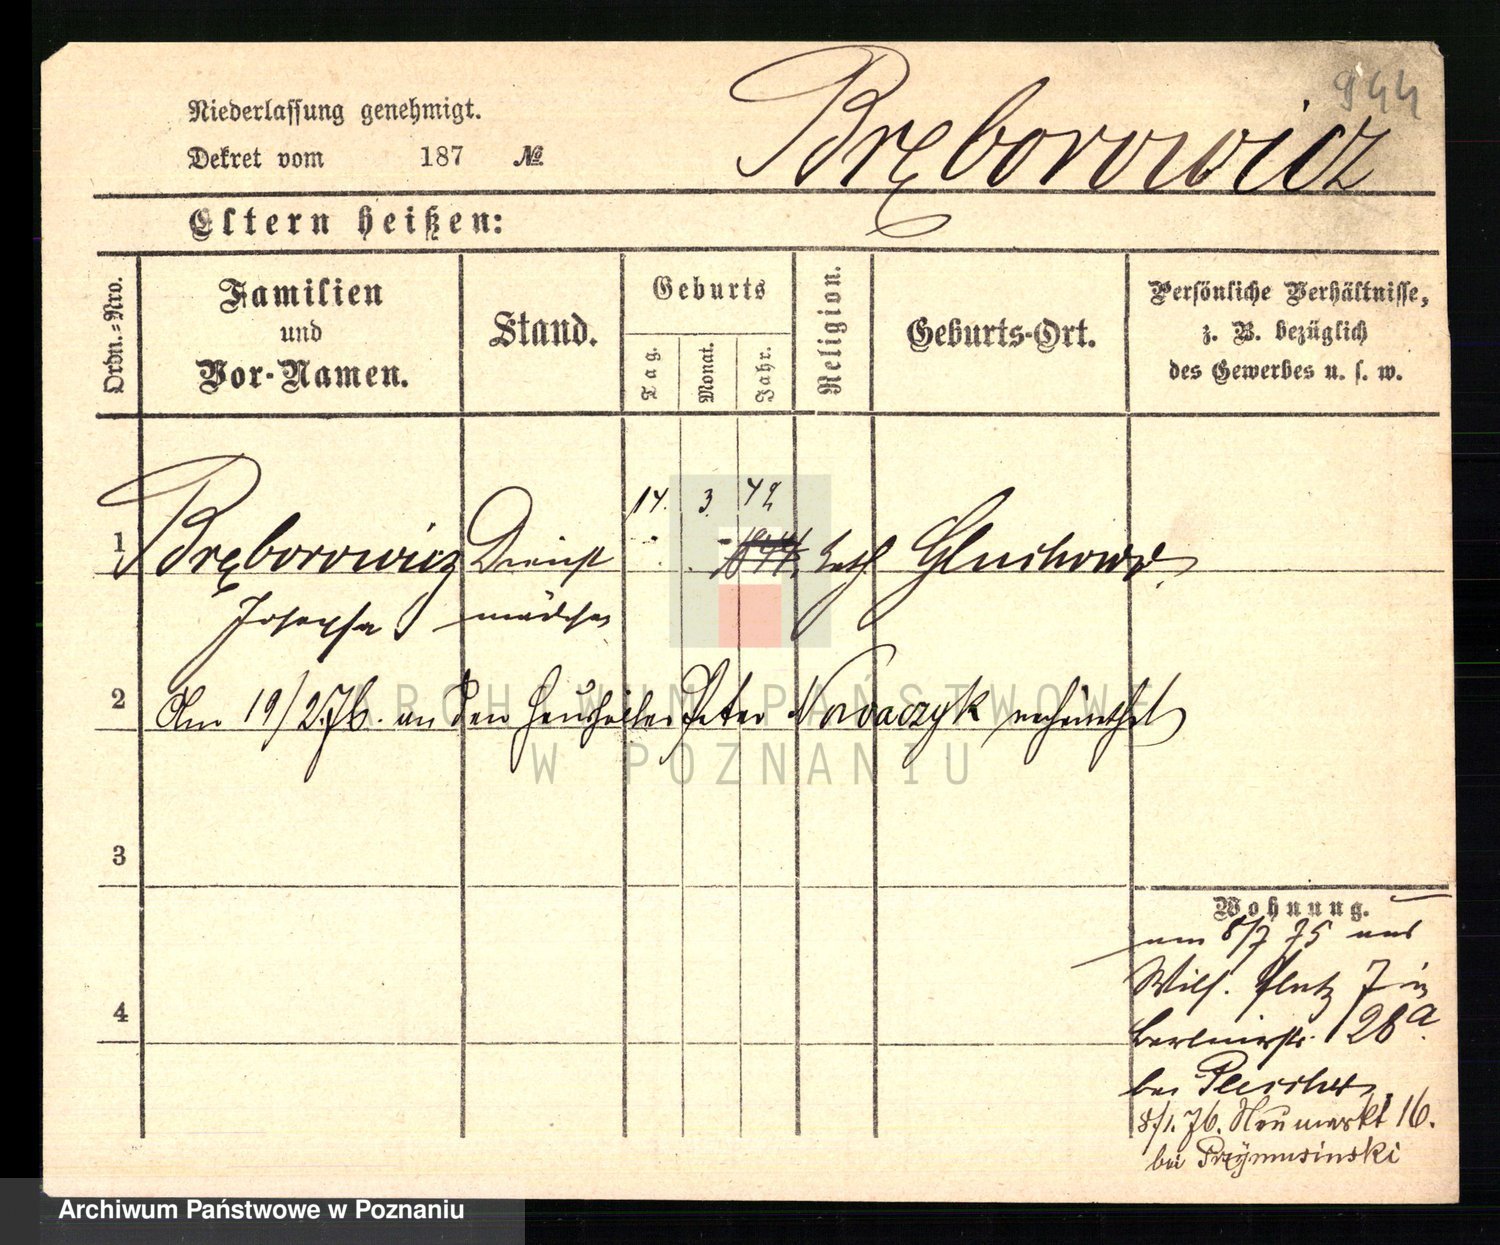 944
Niederlassung genehmigt.
Dekret vom 187 №
Bręborowicz
Eltern heißen:
Ordn.-Nro.
Familien
und
Vor-Namen.
Stand.
Geburts
Tag.
Monat.
Jahr.
Religion.
Geburts-Ort.
Persönliche Verhältnisse,
z. B. bezüglich
des Gewerbes u. s. w.
14. 3. 42
1 Bręborowicz Dienst kath Gluchowo
Josepha mädchen
2 Am 19/2.76. an den Haushälter Peter Nowaczyk verheirathet
ARCHIWUM PAŃSTWOWE
W POZNANIU
3
Wohnung.
am 8/7 75 aus
Wilh. Platz 7 in
4
Berlinerstr. 28a.
bei
8/1.76. Neumarkt 16.
bei Przymusinski
Archiwum Państwowe w Poznaniu